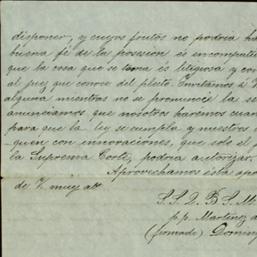 disponer, y cuyos frutos no podria ha
buena fé de la posesion és incompati
que la cosa que se toma és litigiosa y con
al juez que conoce del pleito. Invitamos á V
alguna mientras no se pronuncie la se
anunciamos que nosotros haremos cuan
para que la ley se cumpla y nuestros
quen con innovaciones, que solo el
la Suprema Corte, podria autorizar.
Aprovechamos ésta opo
de V. muy att
S. S. Q. B. S. M.
p. p. Martinez
(firmado) Doming